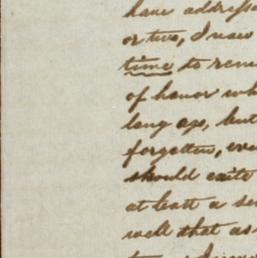 have address
or two, I now
time to rem
of honor wh
long ago, but
forgotten, eve
should excite
at least a se
well that as